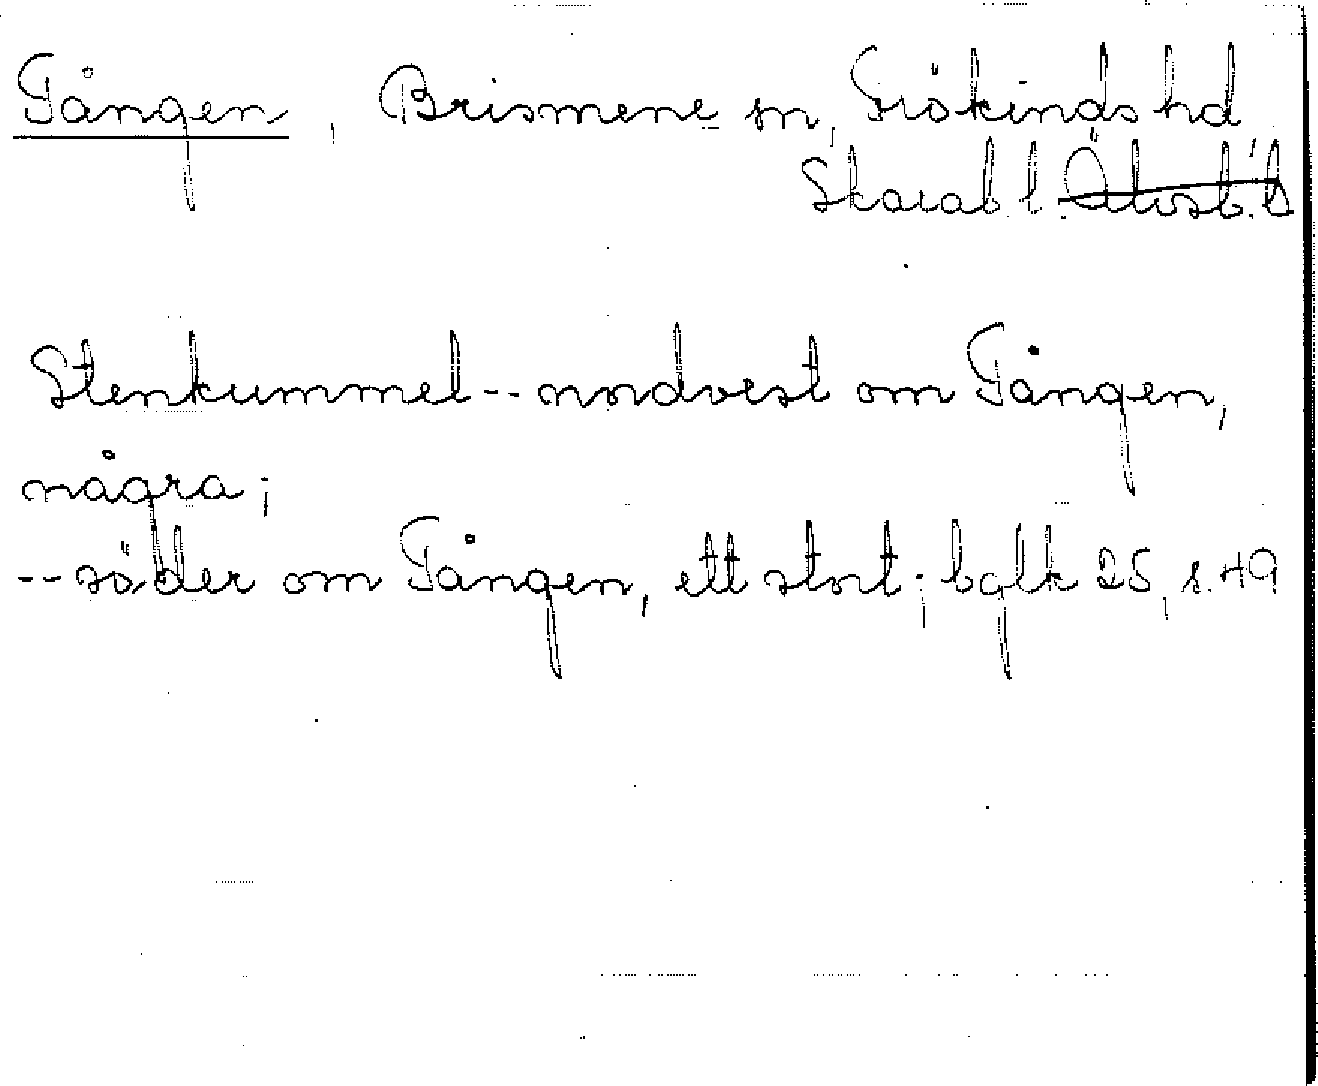 Tången, Brismene sn, Frökinds hd
Skarab. l. Älvsb. l
Stenkummel -- nordvest om Tången,
några;
-- söder om Tången, ett stort; bglk 25, s. 49